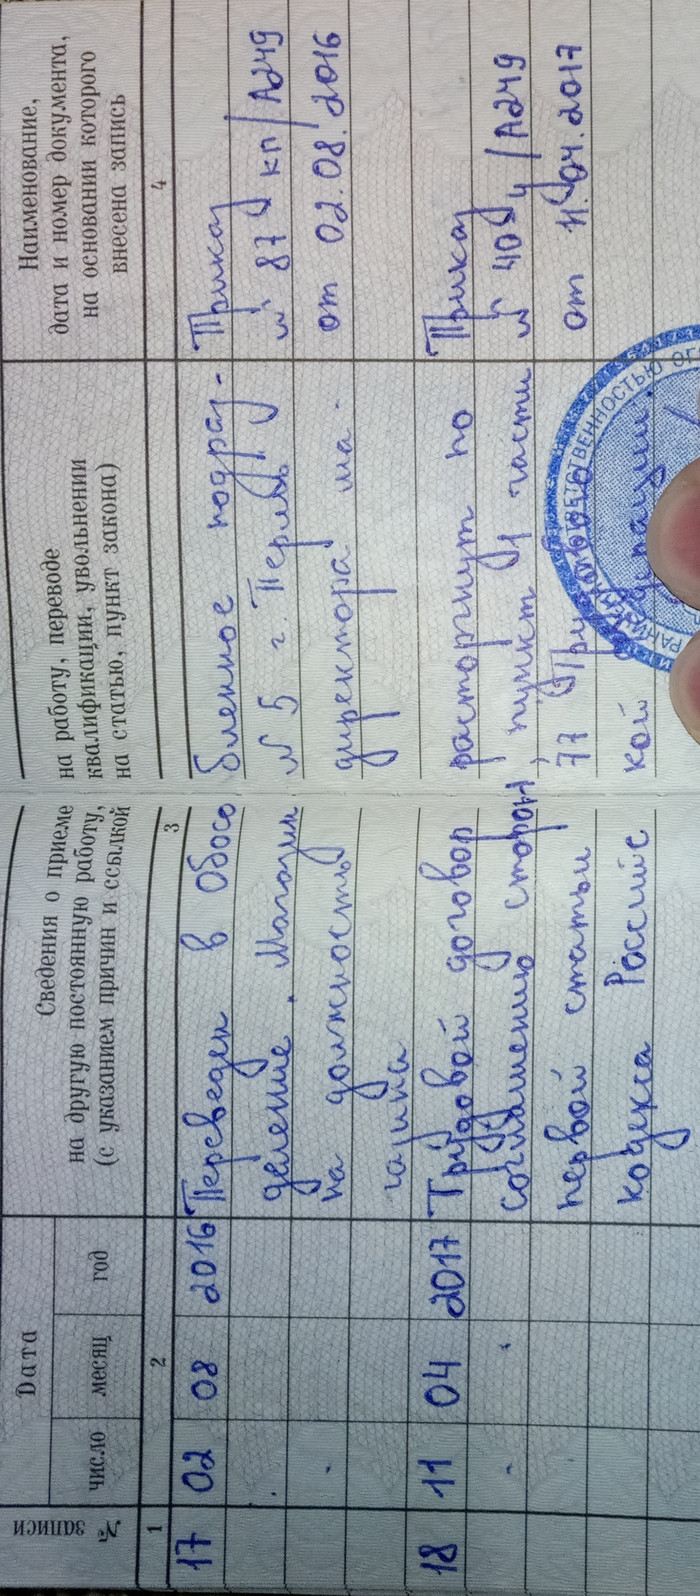 № записи
Дата
число месяц год
Сведения о приеме на работу, переводе
на другую постоянную работу, квалификации, увольнении
(с указанием причин и ссылкой на статью, пункт закона)
Наименование,
дата и номер документа,
на основании которого
внесена запись
1 2 3 4
17 02 08 2016 Переведен в Обособленное подраз- Приказ
деление. Магазин № 5 г. Пермь № 87 кп/А249
на должность директора ма- от 02.08.2016
газина
18 11 04 2017 Трудовой договор расторгнут по Приказ
соглашению сторон, пункт 1 части № 40 у/А249
первой статьи 77 Трудового от 11.04.2017
кодекса Российской Федерации.
ОТВЕТСТВЕННОСТЬЮ